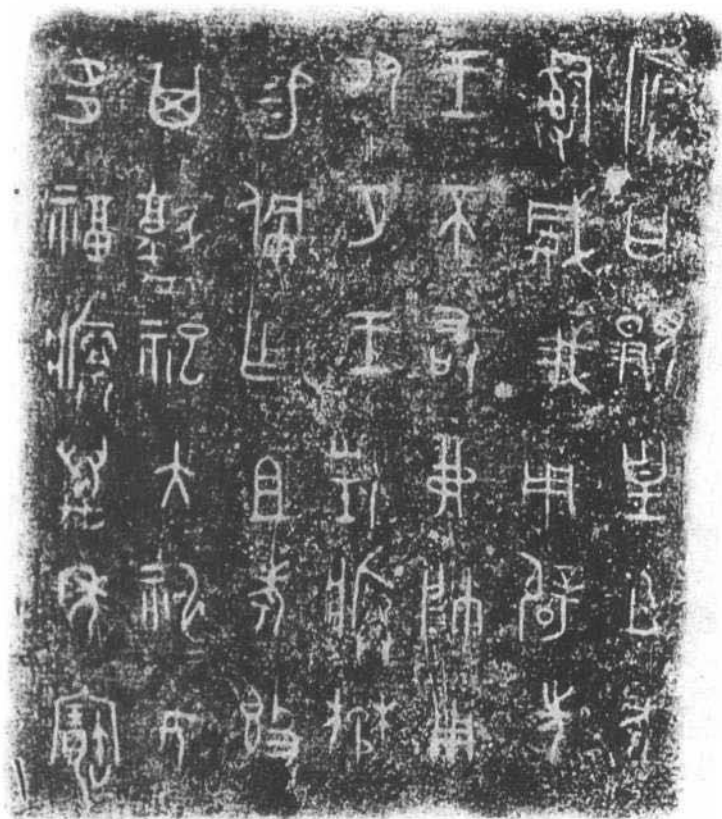 𤼈曰覭皇且考
𤔲威義用辟先
王不敢弗帥用
夙夕王對𤼈楙
易佩乍且考𣪘
其盩祀大神大神妥
多福𤼈萬年寶